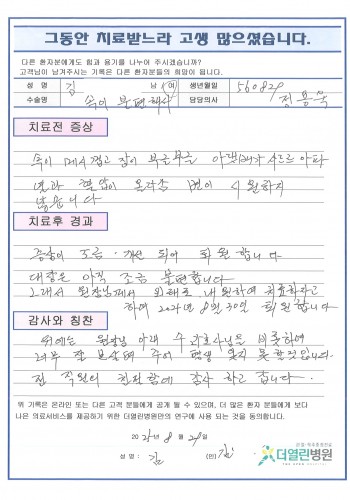 그동안 치료받느라 고생 많으셨습니다.
다른 환자분에게도 힘과 용기를 나누어 주시겠습니까?
고객님이 남겨주시는 기록은 다른 환자분들의 희망이 됩니다.
성 명 김 남 여 생년월일 560829
수술명 속이 불편해서 담당의사 정용욱
치료전 증상
속이 메시껍고 잠이 부근부근 아랫배가 사르르 아파
변이 시원하지
않습니다
치료후 경과
증상이 조금 개선 되어 퇴원합니다
대장은 아직 조금 불편합니다
그래서 원장님께서 외래로 내원하여 치료하자고
하여 2024년 8월 30일 퇴원합니다
감사와 칭찬
원장님 아래 수간호사님을 비롯하여
너무 잘 보살펴 주어 평생 잊지 못할것입니다.
전 직원의 친절함에 감사 하고 갑니다.
위 기록은 온라인 또는 다른 고객 분들에게 공개 될 수 있으며, 더 많은 환자 분들에게 보다
나은 의료서비스를 제공하기 위한 더열린병원만의 연구에 사용 되는 것을 동의합니다.
2024년 8월 29일
성 명 : 김 (인)
더열린병원
THE OPEN HOSPITAL